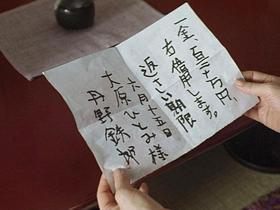 一金、百二十万円
右借用します。
返さい期限
六月十五日
大原ひとみ様
丹野鉄郎